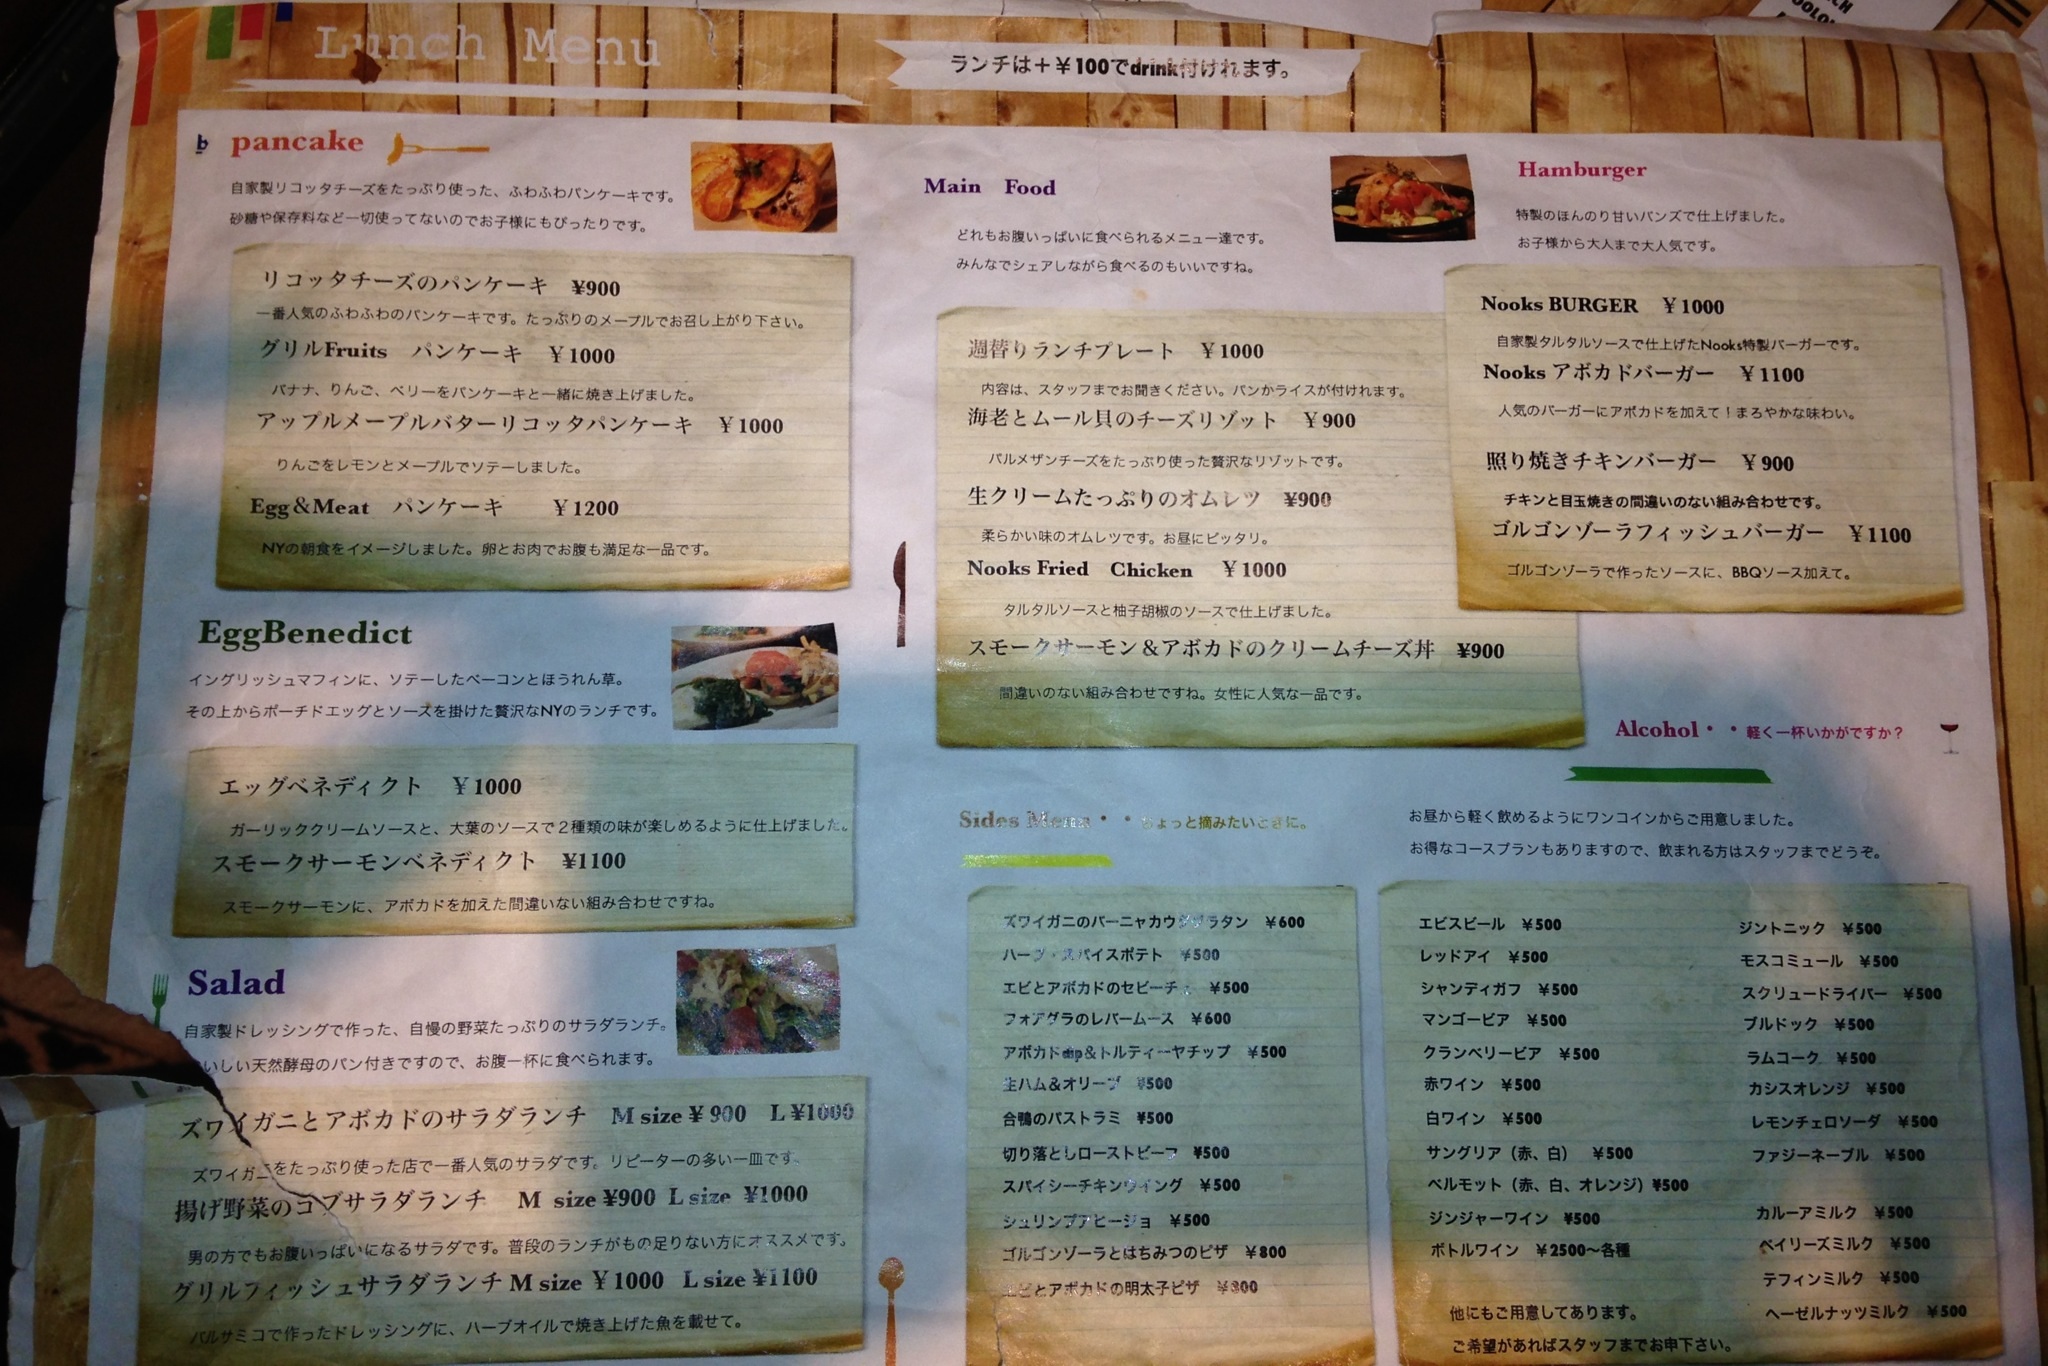 Lunch Menu
ランチは＋￥100でdrink付けれます。
pancake
自家製リコッタチーズをたっぷり使った、ふわふわパンケーキです。
砂糖や保存料など一切使ってないのでお子様にもぴったりです。
リコッタチーズのパンケーキ ¥900
一番人気のふわふわのパンケーキです。たっぷりのメープルでお召し上がり下さい。
グリルFruits パンケーキ ￥1000
バナナ、りんご、ベリーをパンケーキと一緒に焼き上げました。
アップルメープルバターリコッタパンケーキ ￥1000
りんごをレモンとメープルでソテーしました。
Egg＆Meat パンケーキ ￥1200
NYの朝食をイメージしました。卵とお肉でお腹も満足な一品です。
EggBenedict
イングリッシュマフィンに、ソテーしたベーコンとほうれん草。
その上からポーチドエッグとソースを掛けた贅沢なNYのランチです。
エッグベネディクト ￥1000
ガーリッククリームソースと、大葉のソースで２種類の味が楽しめるように仕上げました。
スモークサーモンベネディクト ¥1100
スモークサーモンに、アボカドを加えた間違いない組み合わせですね。
Salad
自家製ドレッシングで作った、自慢の野菜たっぷりのサラダランチ。
いしい天然酵母のパン付きですので、お腹一杯に食べられます。
ズワイガニとアボカドのサラダランチ M size￥900 L¥1000
ズワイガニをたっぷり使った店で一番人気のサラダです。リピーターの多い一皿です。
揚げ野菜のコブサラダランチ M size ¥900 L size ¥1000
男の方でもお腹いっぱいになるサラダです。普段のランチがもの足りない方にオススメです。
グリルフィッシュサラダランチ M size ￥1000 L size ¥1100
バルサミコで作ったドレッシングに、ハーブオイルで焼き上げた魚を載せて。
Main Food
どれもお腹いっぱいに食べられるメニュー達です。
みんなでシェアしながら食べるのもいいですね。
週替りランチプレート ￥1000
内容は、スタッフまでお聞きください。パンかライスが付けれます。
海老とムール貝のチーズリゾット ￥900
パルメザンチーズをたっぷり使った贅沢なリゾットです。
生クリームたっぷりのオムレツ ¥900
柔らかい味のオムレツです。お昼にピッタリ。
Nooks Fried Chicken ￥1000
タルタルソースと柚子胡椒のソースで仕上げました。
スモークサーモン＆アボカドのクリームチーズ丼 ¥900
間違いのない組み合わせですね。女性に人気な一品です。
Hamburger
特製のほんのり甘いバンズで仕上げました。
お子様から大人まで大人気です。
Nooks BURGER ￥1000
自家製タルタルソースで仕上げたNooks特製バーガーです。
Nooks アボカドバーガー ￥1100
人気のバーガーにアボカドを加えて！まろやかな味わい。
照り焼きチキンバーガー ￥900
チキンと目玉焼きの間違いのない組み合わせです。
ゴルゴンゾーラフィッシュバーガー ￥1100
ゴルゴンゾーラで作ったソースに、BBQソース加えて。
Sides Menu・・ちょっと摘みたいときに。
ズワイガニのバーニャカウダグラタン ￥600
ハーブ・スパイスポテト ￥500
エビとアボカドのセビーチェ ￥500
フォアグラのレバームース ￥600
アボカドdip＆トルティーヤチップ ￥500
生ハム＆オリーブ ¥500
合鴨のパストラミ ¥500
切り落としローストビーフ ¥500
スパイシーチキンウイング ￥500
シュリンプアヒージョ ￥500
ゴルゴンゾーラとはちみつのピザ ￥800
エビとアボカドの明太子ピザ ￥800
Alcohol・・軽く一杯いかがですか？
お昼から軽く飲めるようにワンコインからご用意しました。
お得なコースプランもありますので、飲まれる方はスタッフまでどうぞ。
エビスビール ￥500
レッドアイ ￥500
シャンディガフ ￥500
マンゴービア ￥500
クランベリービア ￥500
赤ワイン ￥500
白ワイン ￥500
サングリア（赤、白） ￥500
ベルモット（赤、白、オレンジ）¥500
ジンジャーワイン ¥500
ボトルワイン ￥2500〜各種
他にもご用意してあります。
ご希望があればスタッフまでお申下さい。
ジントニック ￥500
モスコミュール ￥500
スクリュードライバー ￥500
ブルドック ￥500
ラムコーク ￥500
カシスオレンジ ￥500
レモンチェロソーダ ￥500
ファジーネーブル ￥500
カルーアミルク ￥500
ベイリーズミルク ￥500
テフィンミルク ￥500
ヘーゼルナッツミルク ￥500